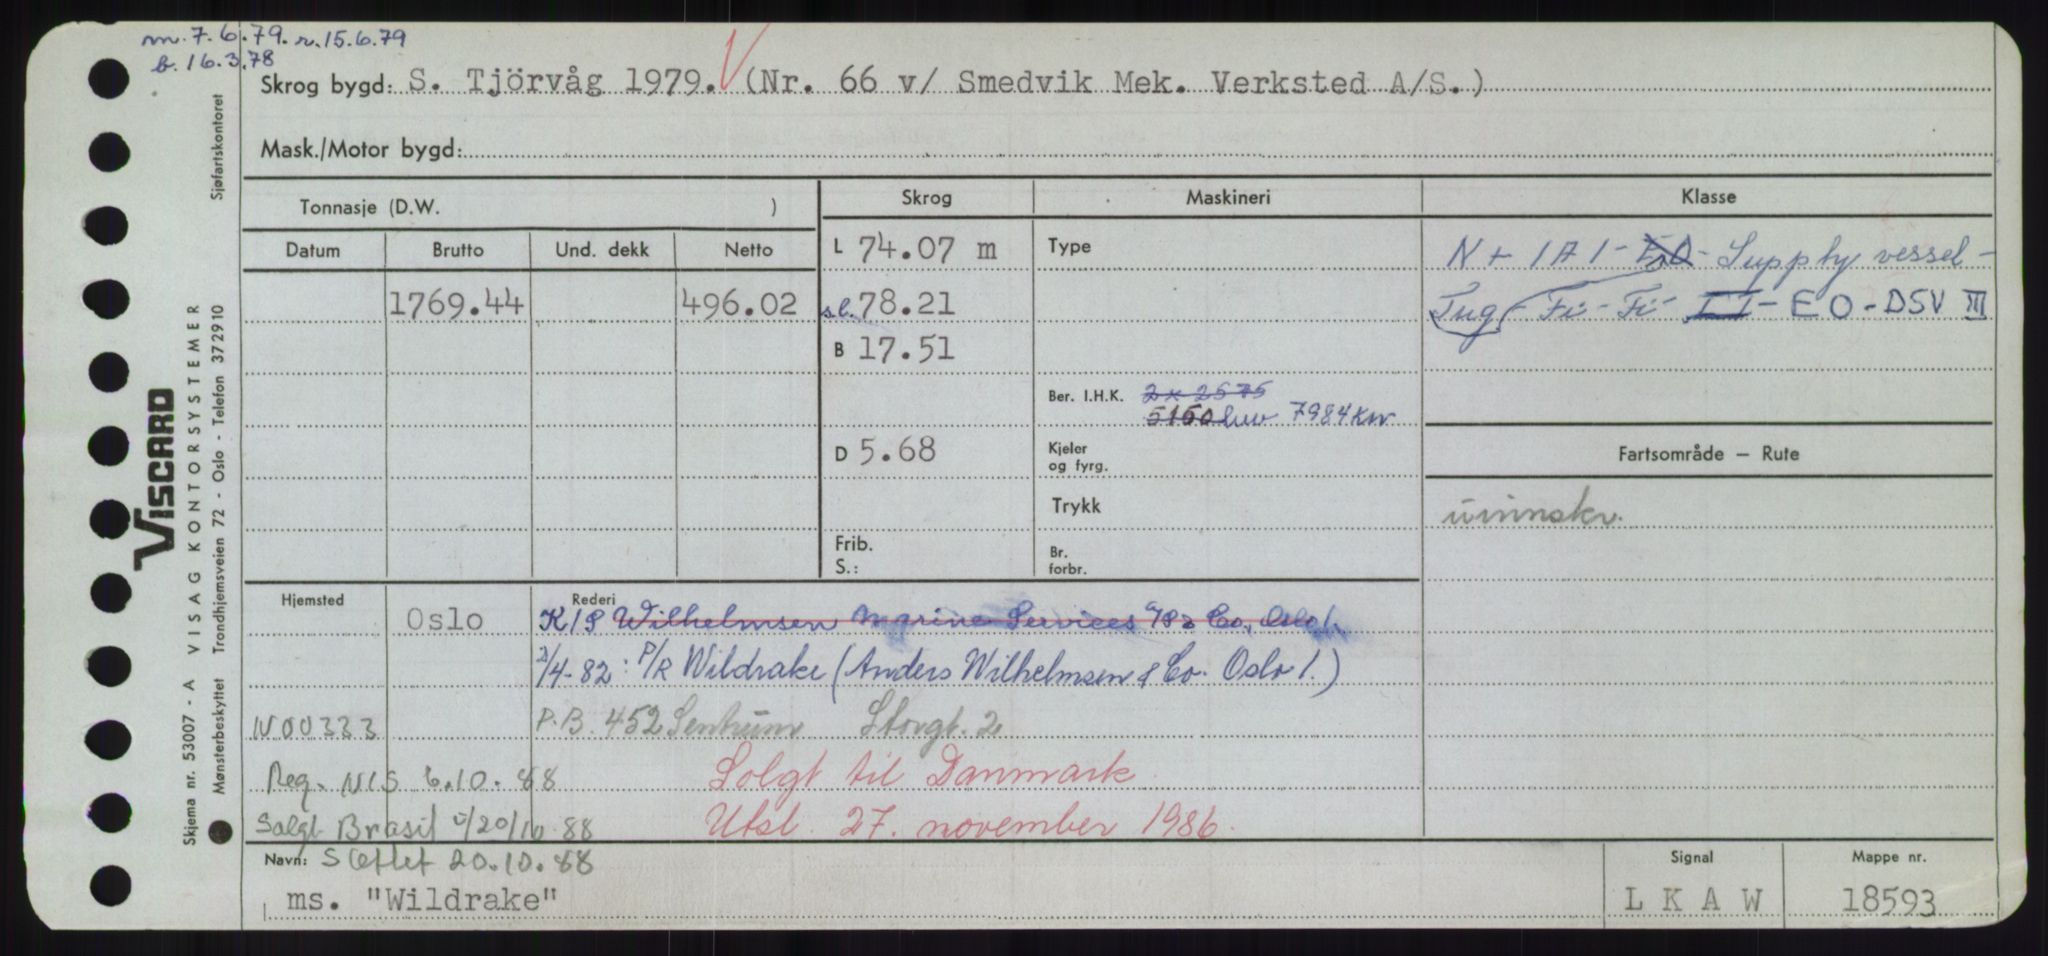 m. 7.6.79. r. 15.6.79
b. 16.3.78
Skrog bygd: S. Tjörvåg 1979. (Nr. 66 v/ Smedvik Mek. Verksted A/S.)
Mask./Motor bygd:
Tonnasje (D.W. )
Skrog
Maskineri
Klasse
Datum Brutto Und. dekk Netto
1769.44 496.02
L 74.07 m
s.l. 78.21
B 17.51
D 5.68
Frib.
S.:
Type
Ber. I.H.K. 2 x 2575
5150 7984 KW
Kjeler
og fyrg.
Trykk
Br.
forbr.
N + 1A1 - E0 - Supply vessel -
Tug - Fi - Fi - II - EO - DSV III
Fartsområde — Rute
uinnskr.
Hjemsted Oslo
Rederi
K/S Wilhelmsen Marine Services A/S & Co, Oslo 1.
2/4-82: P/R Wildrake (Anders Wilhelmsen & Co. Oslo 1.)
N00333 P.B. 452 Sentrum Storgt. 2
Reg. NIS 6.10.88 Solgt til Danmark.
Solgt Brasil 20/10.88 Utsl. 27. november 1986.
Navn: Slettet 20.10.88
ms. "Wildrake"
Signal
LKAW
Mappe nr.
18593
VISCARD
VISAG KONTORSYSTEMER
Skjema nr. 53007 - A
Trondhjemsveien 72 - Oslo - Telefon 372910
Mønsterbeskyttet
Sjøfartskontoret